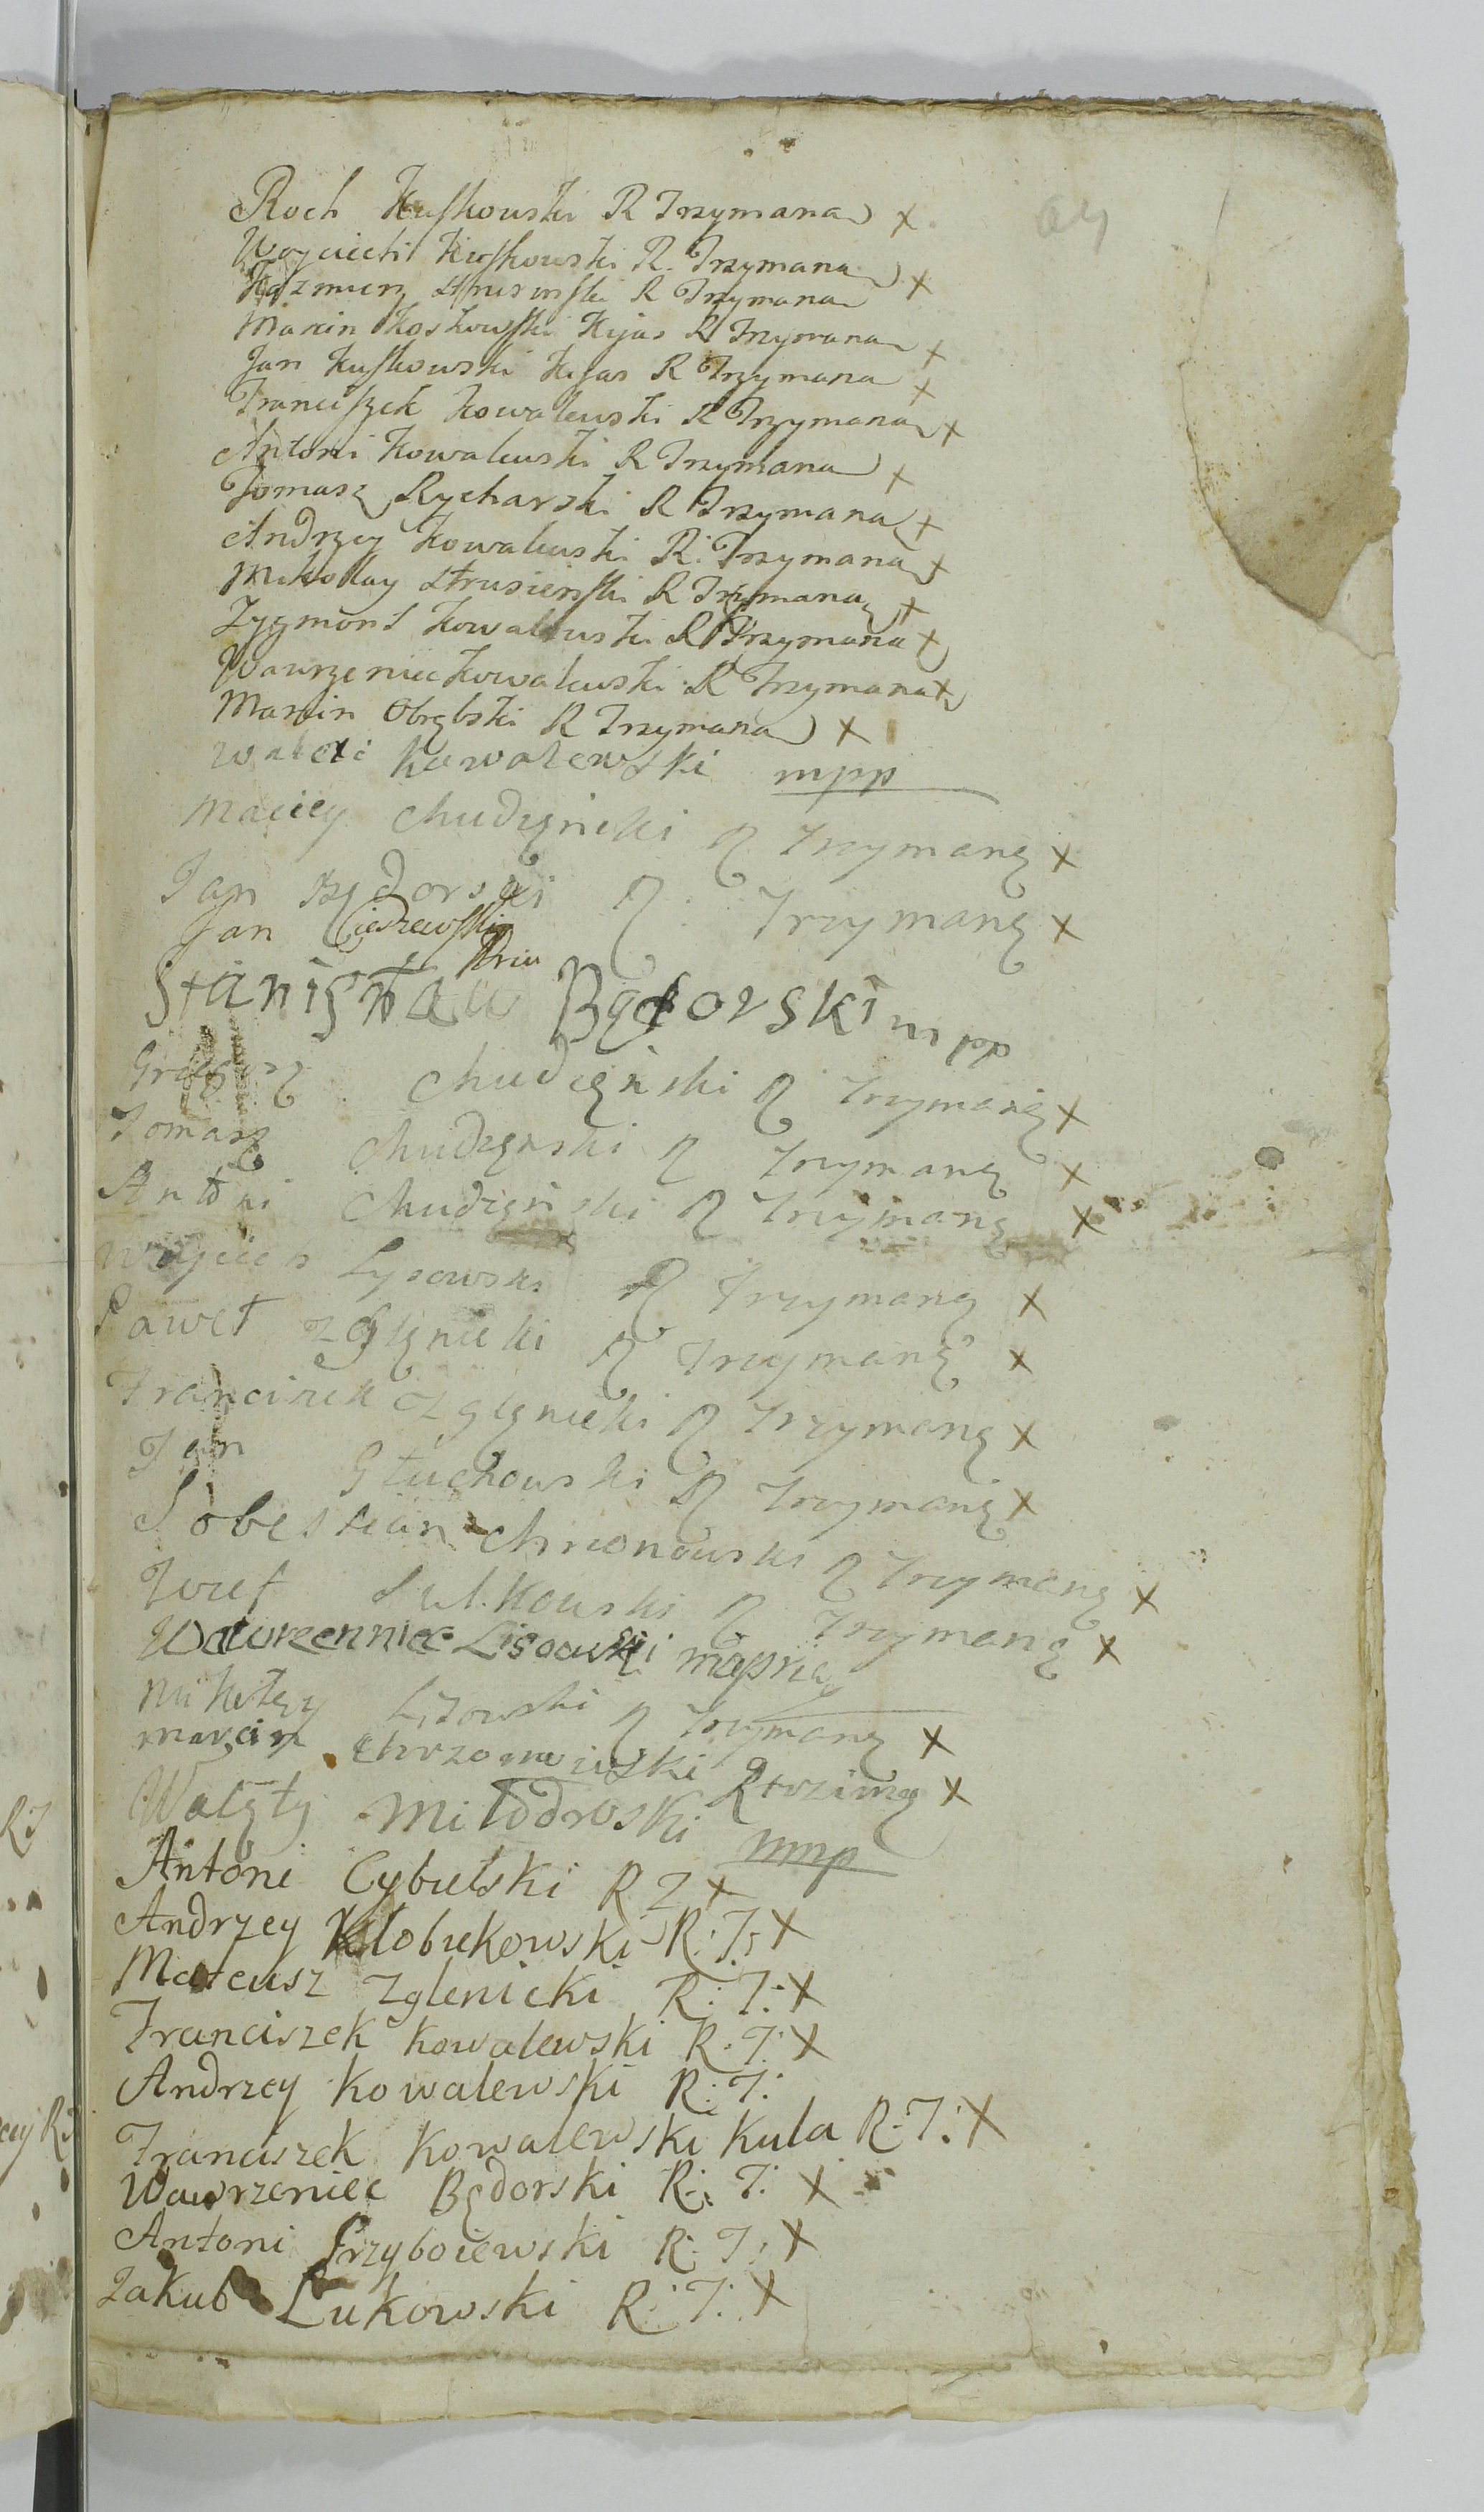 Roch Kuſkowski R Trzymana x
64
Woyciech Kuſkowski R. Trzymana x
Kazmierz Strusinſki R Trzymana
Marcin Koskowſki Kijas R Trzymana x
Jan Kuſkowski Kijas R Trzymana x
Franciſzek Kowalewski R Trzymana x
Antoni Kowalewski R Trzymana x
Tomasz Rycharski R Trzymana x
Andrzey Kowalewski R: Trzymana x
Mikołay Strusienſki R Trzymana x
Zygmont Kowalewski R Trzymana x
Wawrzeniec Kowalewski R Trzymana x
Marcin Obrębski R Trzymana x
Kawalewski mpp
Maciey Chudzynski R Trzymaną x
Jan Będorski R Trzymaną x
Jan Cieszewſki
Stanisław Będorski mpp
Grzegorz Chudzęnski R Trzymaną x
Tomasz Chudzęnski R Trzymaną x
Antoni Chudzęński R Trzymaną x
Woyciech Lysowski R Trzymaną x
Paweł Zglęnicki R Trzymaną x
Franciszek Zglęnicki R Trzymaną x
Jan Głuchowski R Trzymaną x
Sobestian Chrzonowski R Trzymaną x
Jozef Sulkowski R Trzymaną x
Wawrzenniec Lisowski
R Trzymaną x
Marcin R trzimą x
Walęty Miłodroski mp
Antoni Cybulski R Z x
Andrzey Kłobukowski R: T: x
Mateusz Zglenicki R: T: x
Franciszek Kowalewski R: T: x
Andrzey Kowalewski R: T:
Franciszek Kowalewski Kula R: T: x
Wawrzeniec Będorski R: T: x
Antoni Przyboiewski R: T: x
Jakub Łukowski R: T: x